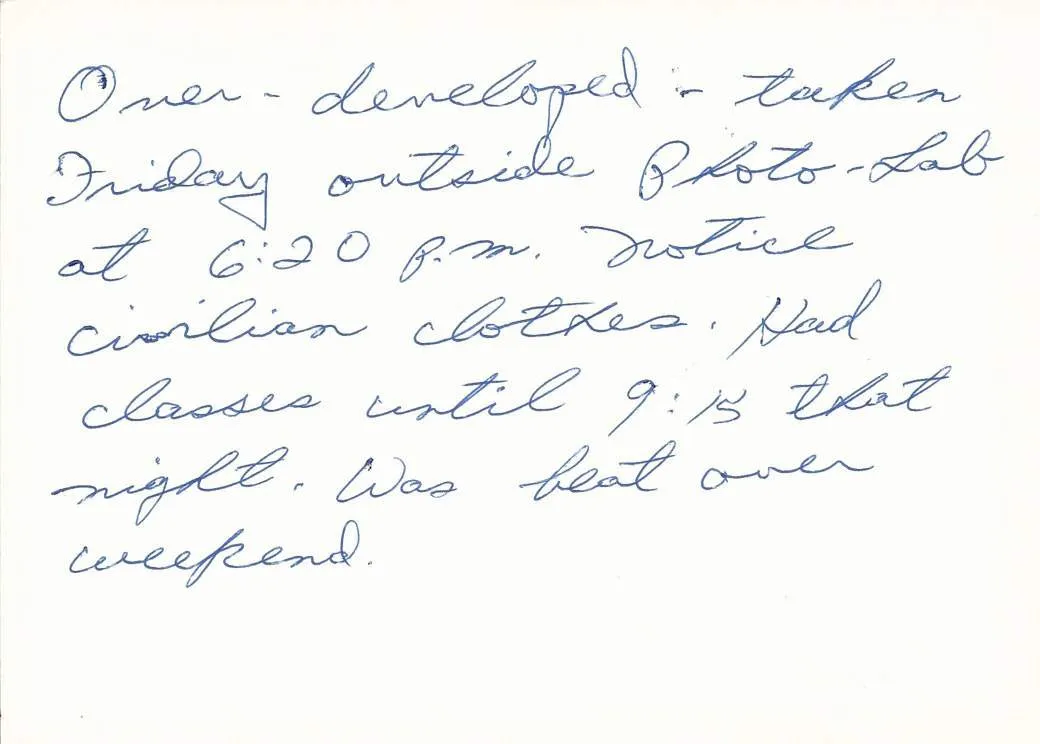 Over-developed - taken
Friday outside Photo-Lab
at 6:20 p.m. Notice
civilian clothes. Had
classes until 9:15 that
night. Was beat over
weekend.